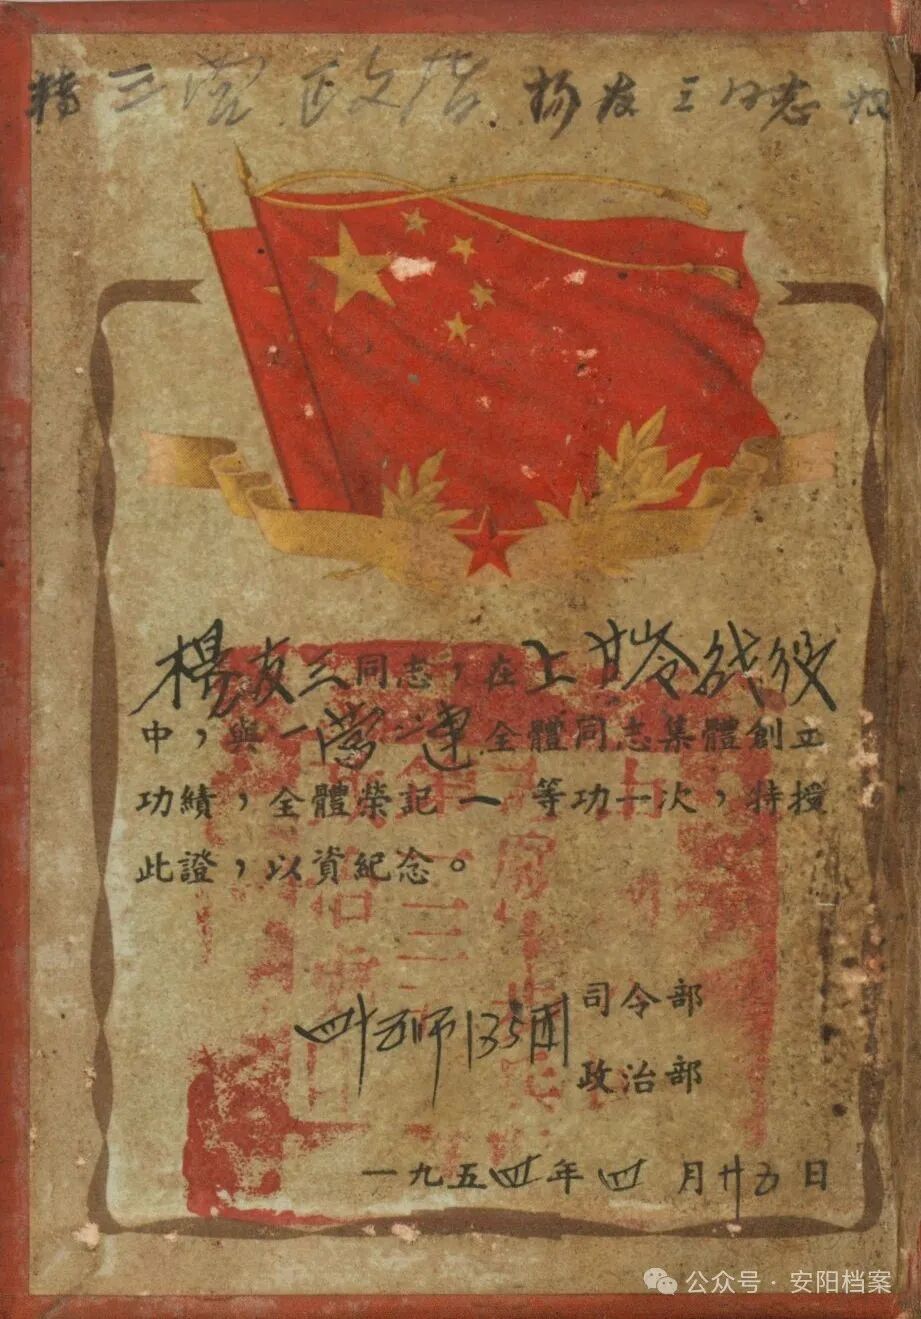 转三营政治 杨友三同志收
楊友三同志，在上甘岭战役
中，與一营二連全體同志集體創立
功績，全體榮記一等功一次，特授
此證，以資紀念。
四十五师135团
司令部
政治部
一九五四年四月廿五日
公众号·安阳档案